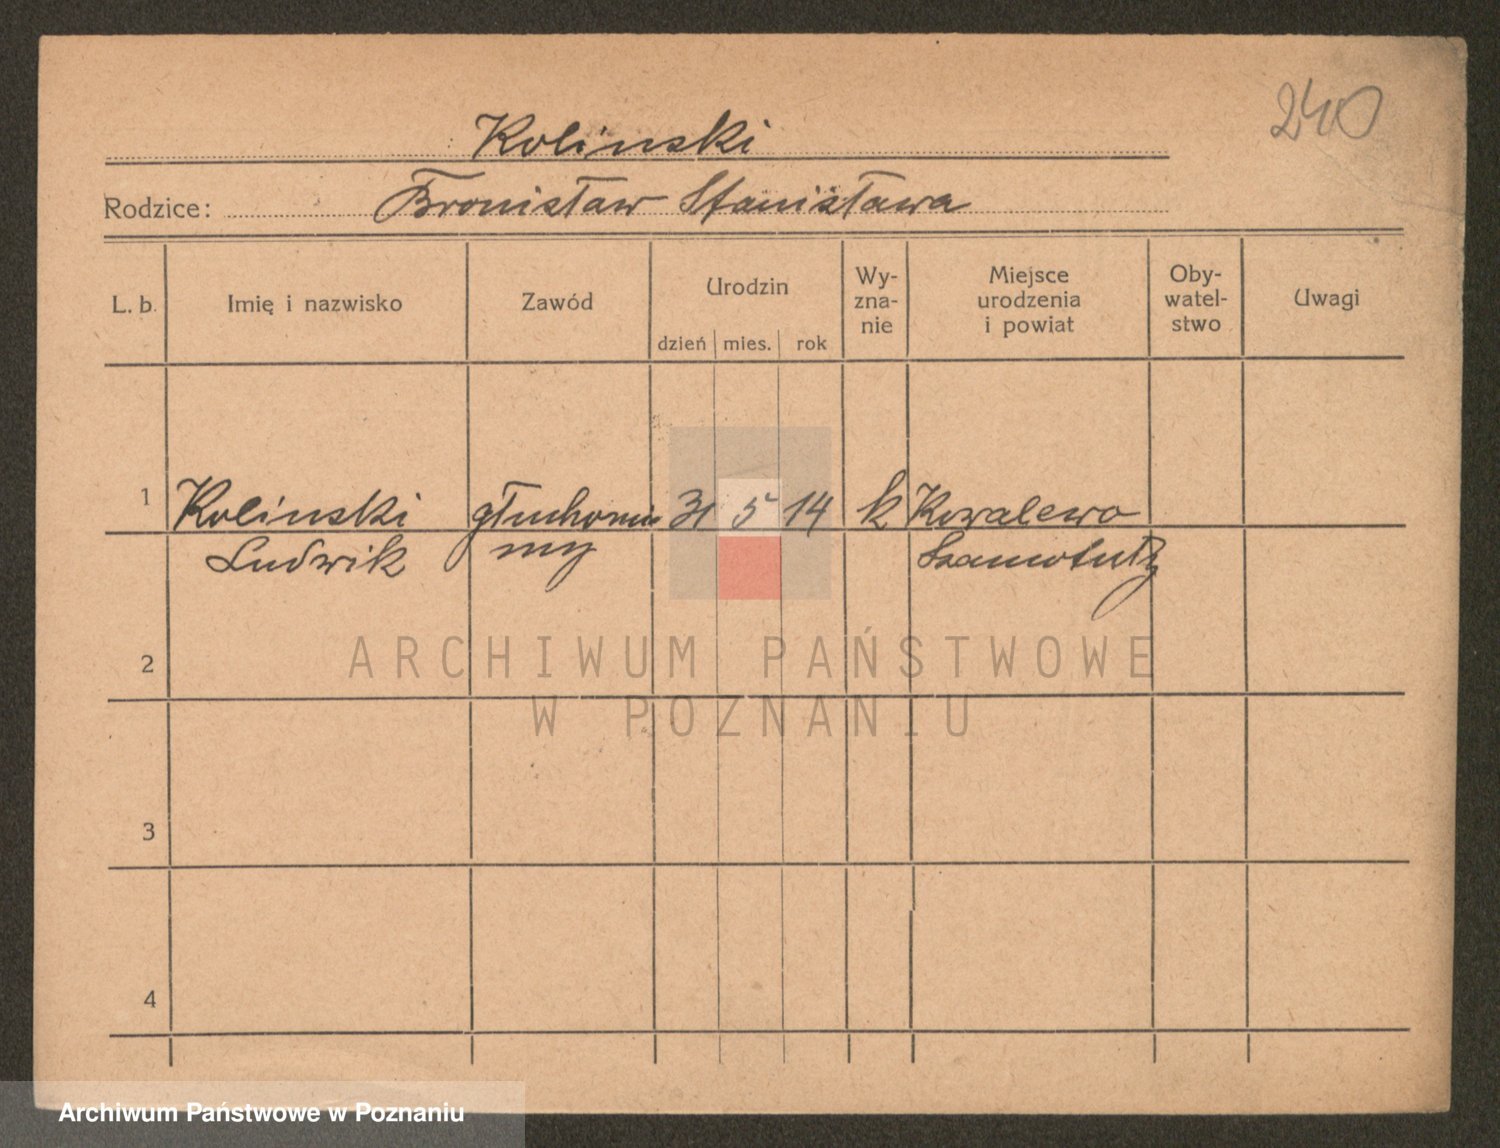 240
Kolinski
Rodzice: Bronisław Stanisława
L. b. Imię i nazwisko Zawód Urodzin Wy-
zna-
nie Miejsce
urodzenia
i powiat Oby-
watel-
stwo Uwagi
dzień mies. rok
1 Kolinski głuchonie 31 5 14 k Kowalewo
Ludwik my Szamotuły
2
ARCHIWUM PAŃSTWOWE
W POZNANIU
3
4
Archiwum Państwowe w Poznaniu